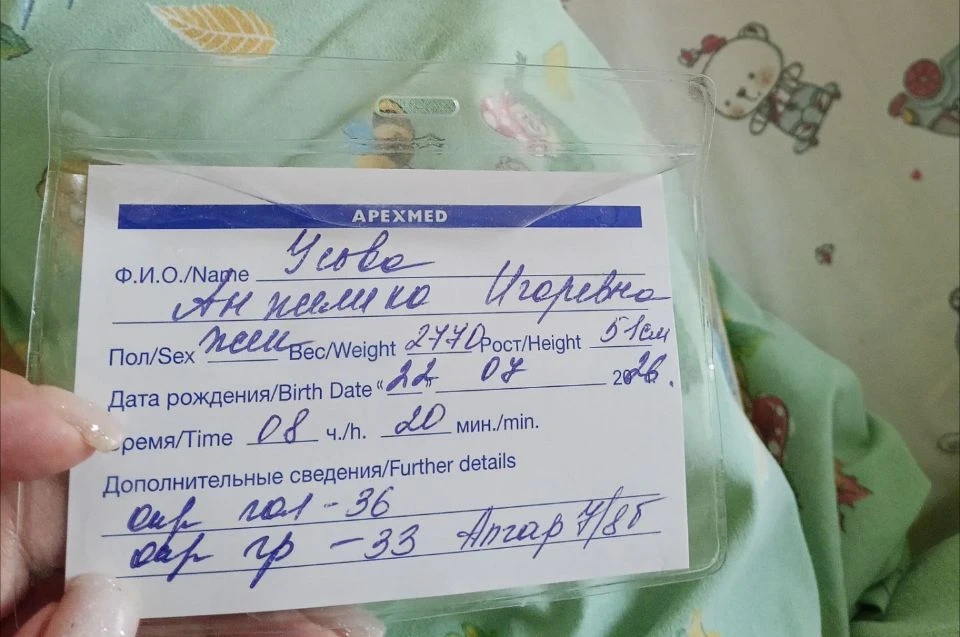 APEXMED
Ф.И.О./Name Усова
Анжелика Игоревна
Пол/Sex жен Вес/Weight 2770 Рост/Height 51см
Дата рождения/Birth Date "22" 07 2026.
ремя/Time 08 ч./h. 20 мин./min.
Дополнительные сведения/Further details
окр гол - 36
окр гр - 33 Апгар 7/8б